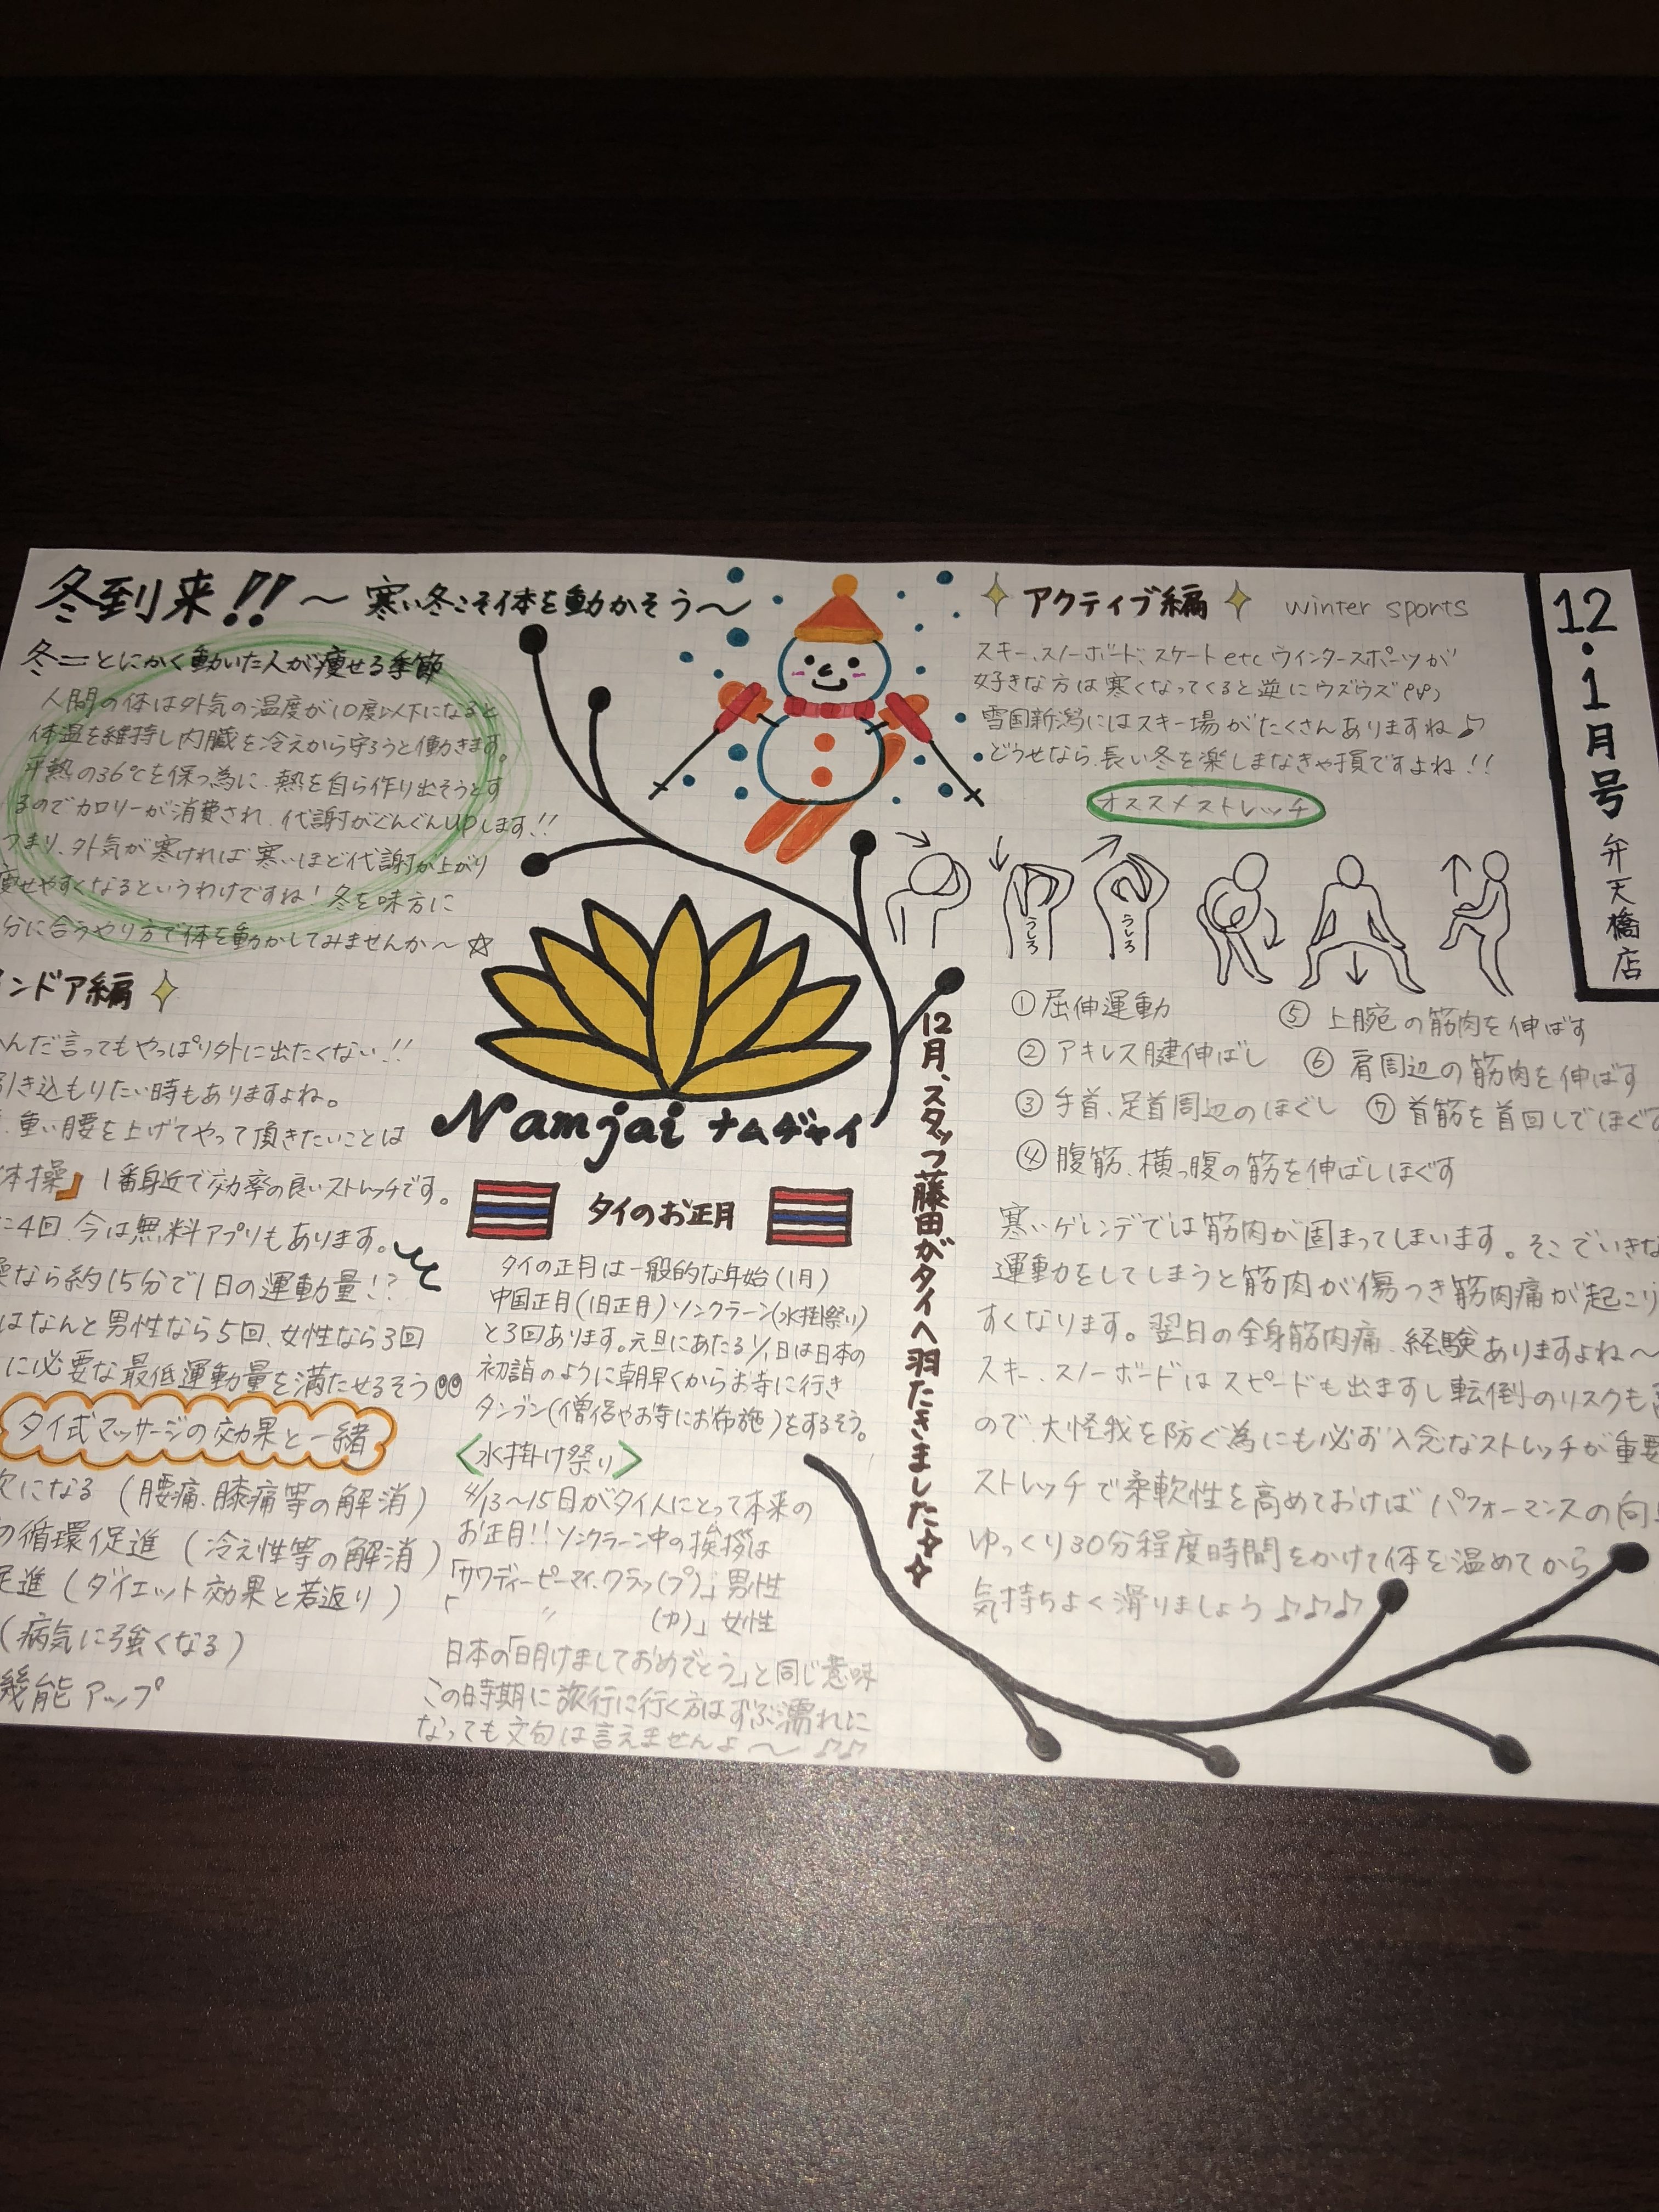 12・1月号 弁天橋店
冬到来!!〜寒い冬こそ体を動かそう〜
冬=とにかく動いた人が痩せる季節
人間の体は外気の温度が10度以下になると
体温を維持し内臓を冷えから守ろうと働きます。
平熱の36℃を保つ為に、熱を自ら作り出そうとす
るのでカロリーが消費され、代謝がぐんぐんUPします!!
つまり、外気が寒ければ寒いほど代謝が上がり
痩せやすくなるというわけですね!冬を味方に
分に合うやり方で体を動かしてみませんか〜☆
ンドア編
んだ言ってもやっぱり外に出たくない!!
引き込もりたい時もありますよね。
重い腰を上げてやって頂きたいことは
体操』1番身近で効率の良いストレッチです。
に4回、今は無料アプリもあります。
操なら約15分で1日の運動量!?
はなんと男性なら5回、女性なら3回
に必要な最低運動量を満たせるそう
タイ式マッサージの効果と一緒
になる(腰痛、膝痛等の解消)
の循環促進(冷え性等の解消)
促進(ダイエット効果と若返り)
(病気に強くなる)
機能アップ
Namjai ナムヂャイ
タイのお正月
タイの正月は一般的な年始(1月)
中国正月(旧正月)ソンクラーン(水掛祭り)
と3回あります。元旦にあたる1/1日は日本の
初詣のように朝早くからお寺に行き
タンブン(僧侶やお寺にお布施)をするそう。
<水掛け祭り>
4/13〜15日がタイ人にとって本来の
お正月!!ソンクラーン中の挨拶は
「サワディーピーマイ、クラッ(プ)」男性
「 〃 (カ)」女性
日本の「明けましておめでとう」と同じ意味
この時期に旅行に行く方はずぶ濡れに
なっても文句は言えませんよ〜♪♪
12月、スタッフ藤田がタイへ羽たきました☆☆
アクティブ編 winter sports
スキー、スノーボード、スケートetcウインタースポーツが
好きな方は寒くなってくると逆にウズウズ
雪国新潟にはスキー場がたくさんありますね♪
どうせなら、長い冬を楽しまなきゃ損ですよね!!
オススメストレッチ
うしろ
うしろ
①屈伸運動
②アキレス腱伸ばし
③手首、足首周辺のほぐし
④腹筋、横っ腹の筋を伸ばしほぐす
⑤上腕の筋肉を伸ばす
⑥肩周辺の筋肉を伸ばす
⑦首筋を首回しでほぐす
寒いゲレンデでは筋肉が固まってしまいます。そこでいきな
運動をしてしまうと筋肉が傷つき筋肉痛が起こり
すくなります。翌日の全身筋肉痛、経験ありますよね〜
スキー、スノーボードはスピードも出ますし転倒のリスクも高
ので、大怪我を防ぐ為にも必ず入念なストレッチが重要
ストレッチで柔軟性を高めておけばパフォーマンスの向上
ゆっくり30分程度時間をかけて体を温めてから
気持ちよく滑りましょう♪♪♪